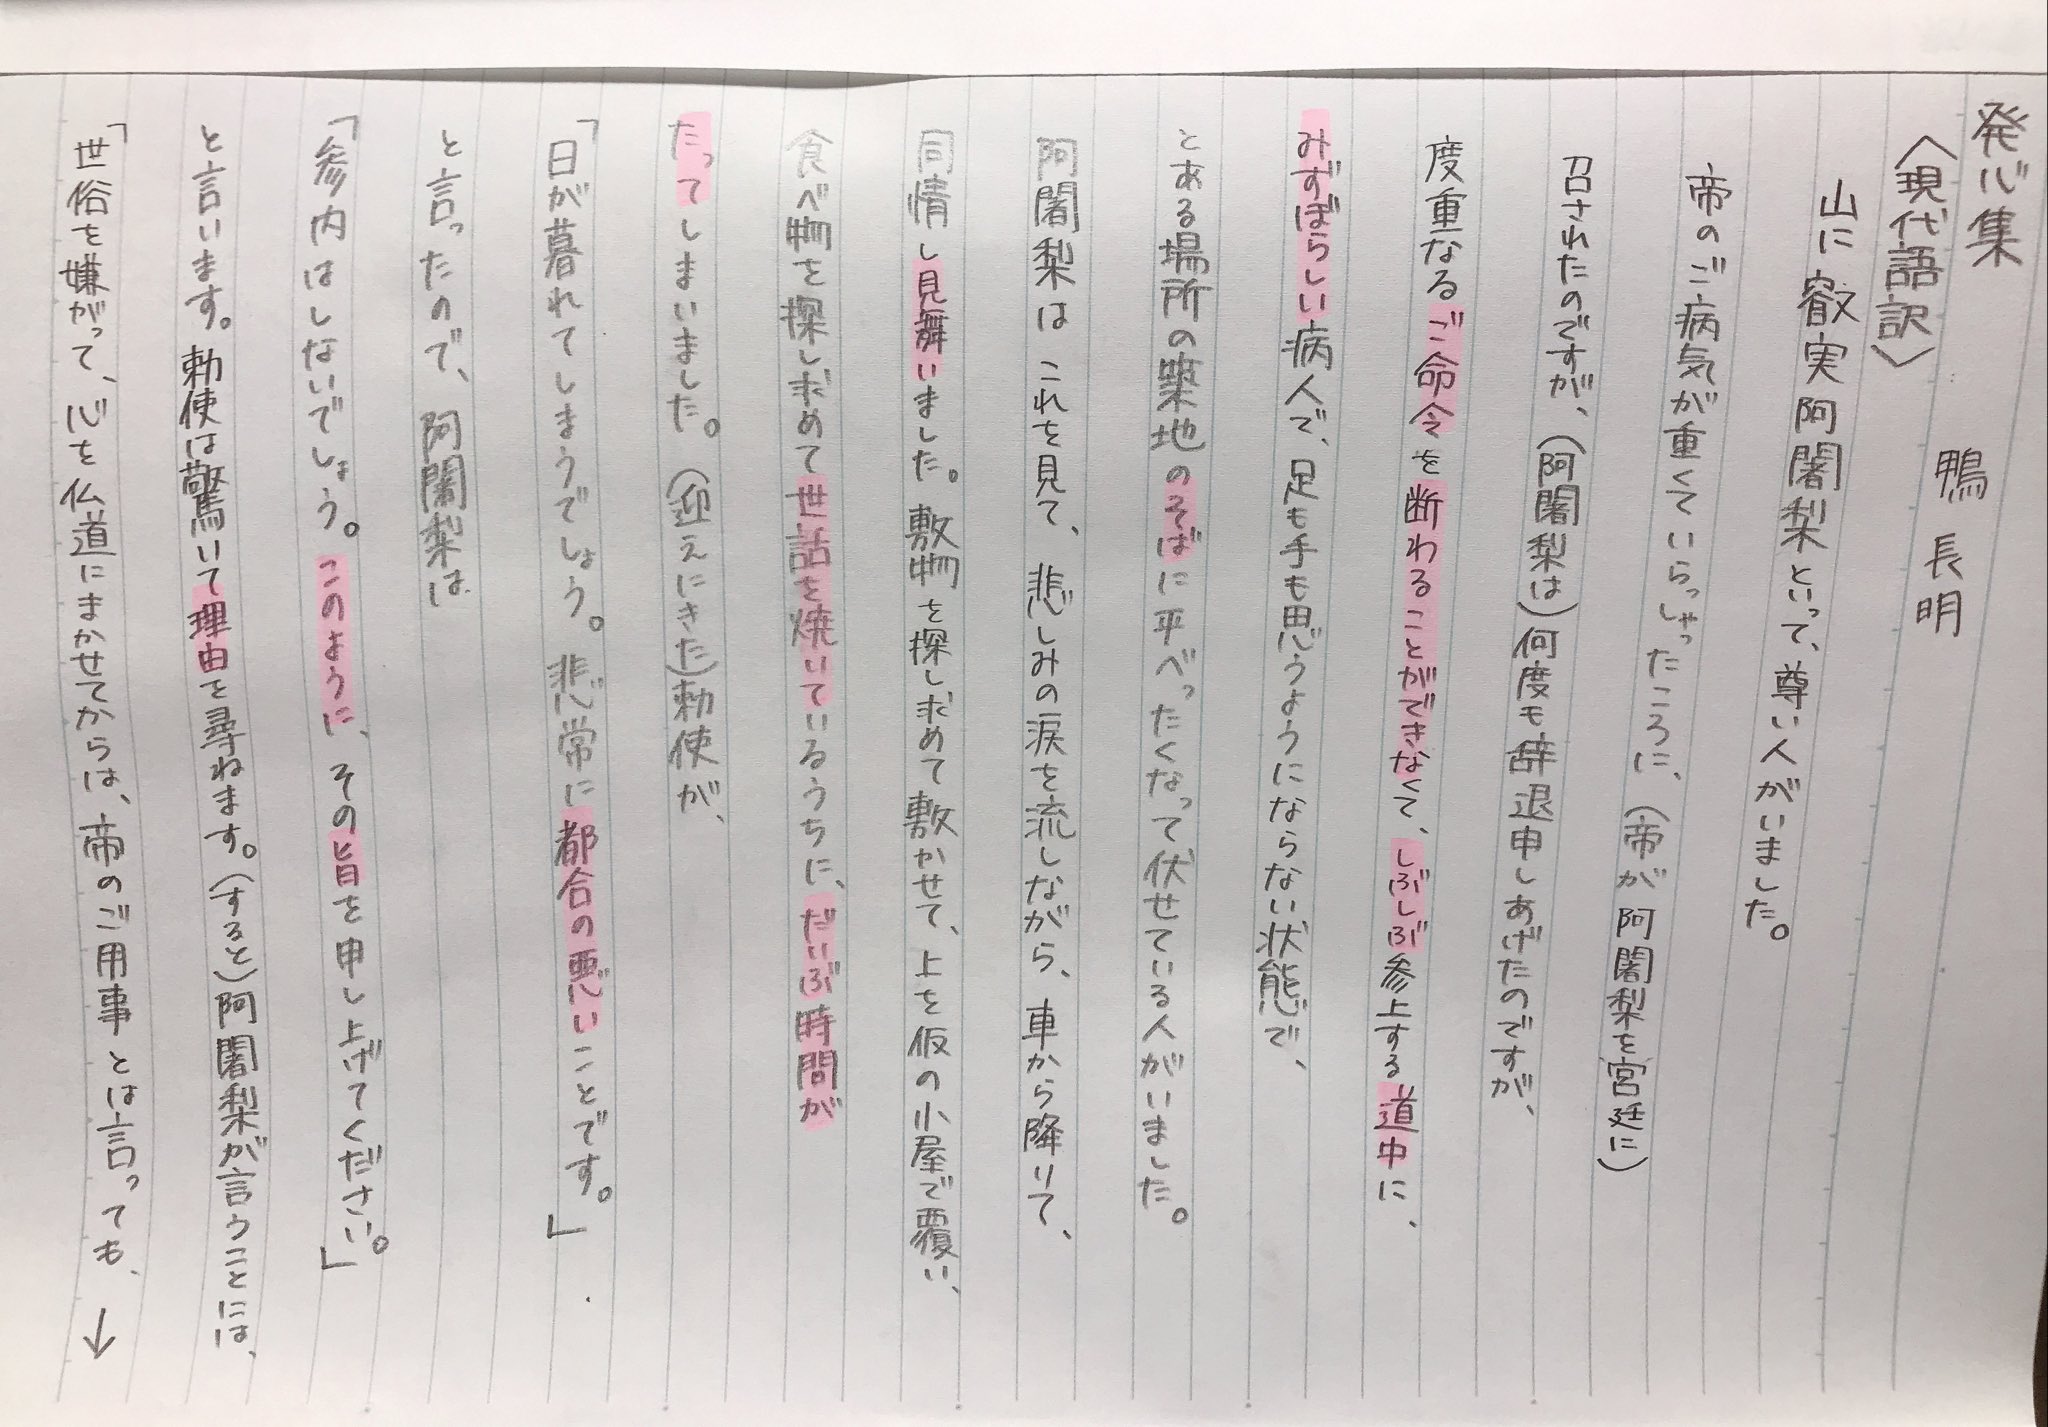 発心集
鴨 長明
〈現代語訳〉
山に叡実阿闍梨といって、尊い人がいました。
帝のご病気が重くていらっしゃったころに、(帝が阿闍梨を宮廷に)
召されたのですが、(阿闍梨は)何度も辞退申しあげたのですが、
度重なるご命令を断わることができなくて、しぶしぶ参上する道中に、
みずぼらしい病人で、足も手も思うようにならない状態で、
とある場所の築地のそばに平べったくなって伏せている人がいました。
阿闍梨はこれを見て、悲しみの涙を流しながら、車から降りて、
同情し見舞いました。敷物を探し求めて敷かせて、上を仮の小屋で覆い、
食べ物を探し求めて世話を焼いているうちに、だいぶ時間が
たってしまいました。(迎えにきた)勅使が、
「日が暮れてしまうでしょう。非常に都合の悪いことです。」
と言ったので、阿闍梨は
「参内はしないでしょう。このように、その旨を申し上げてください。」
と言います。勅使は驚いて理由を尋ねます。(すると)阿闍梨が言うことには、
「世俗を嫌がって、心を仏道にまかせてからは、帝のご用事とは言っても、↓